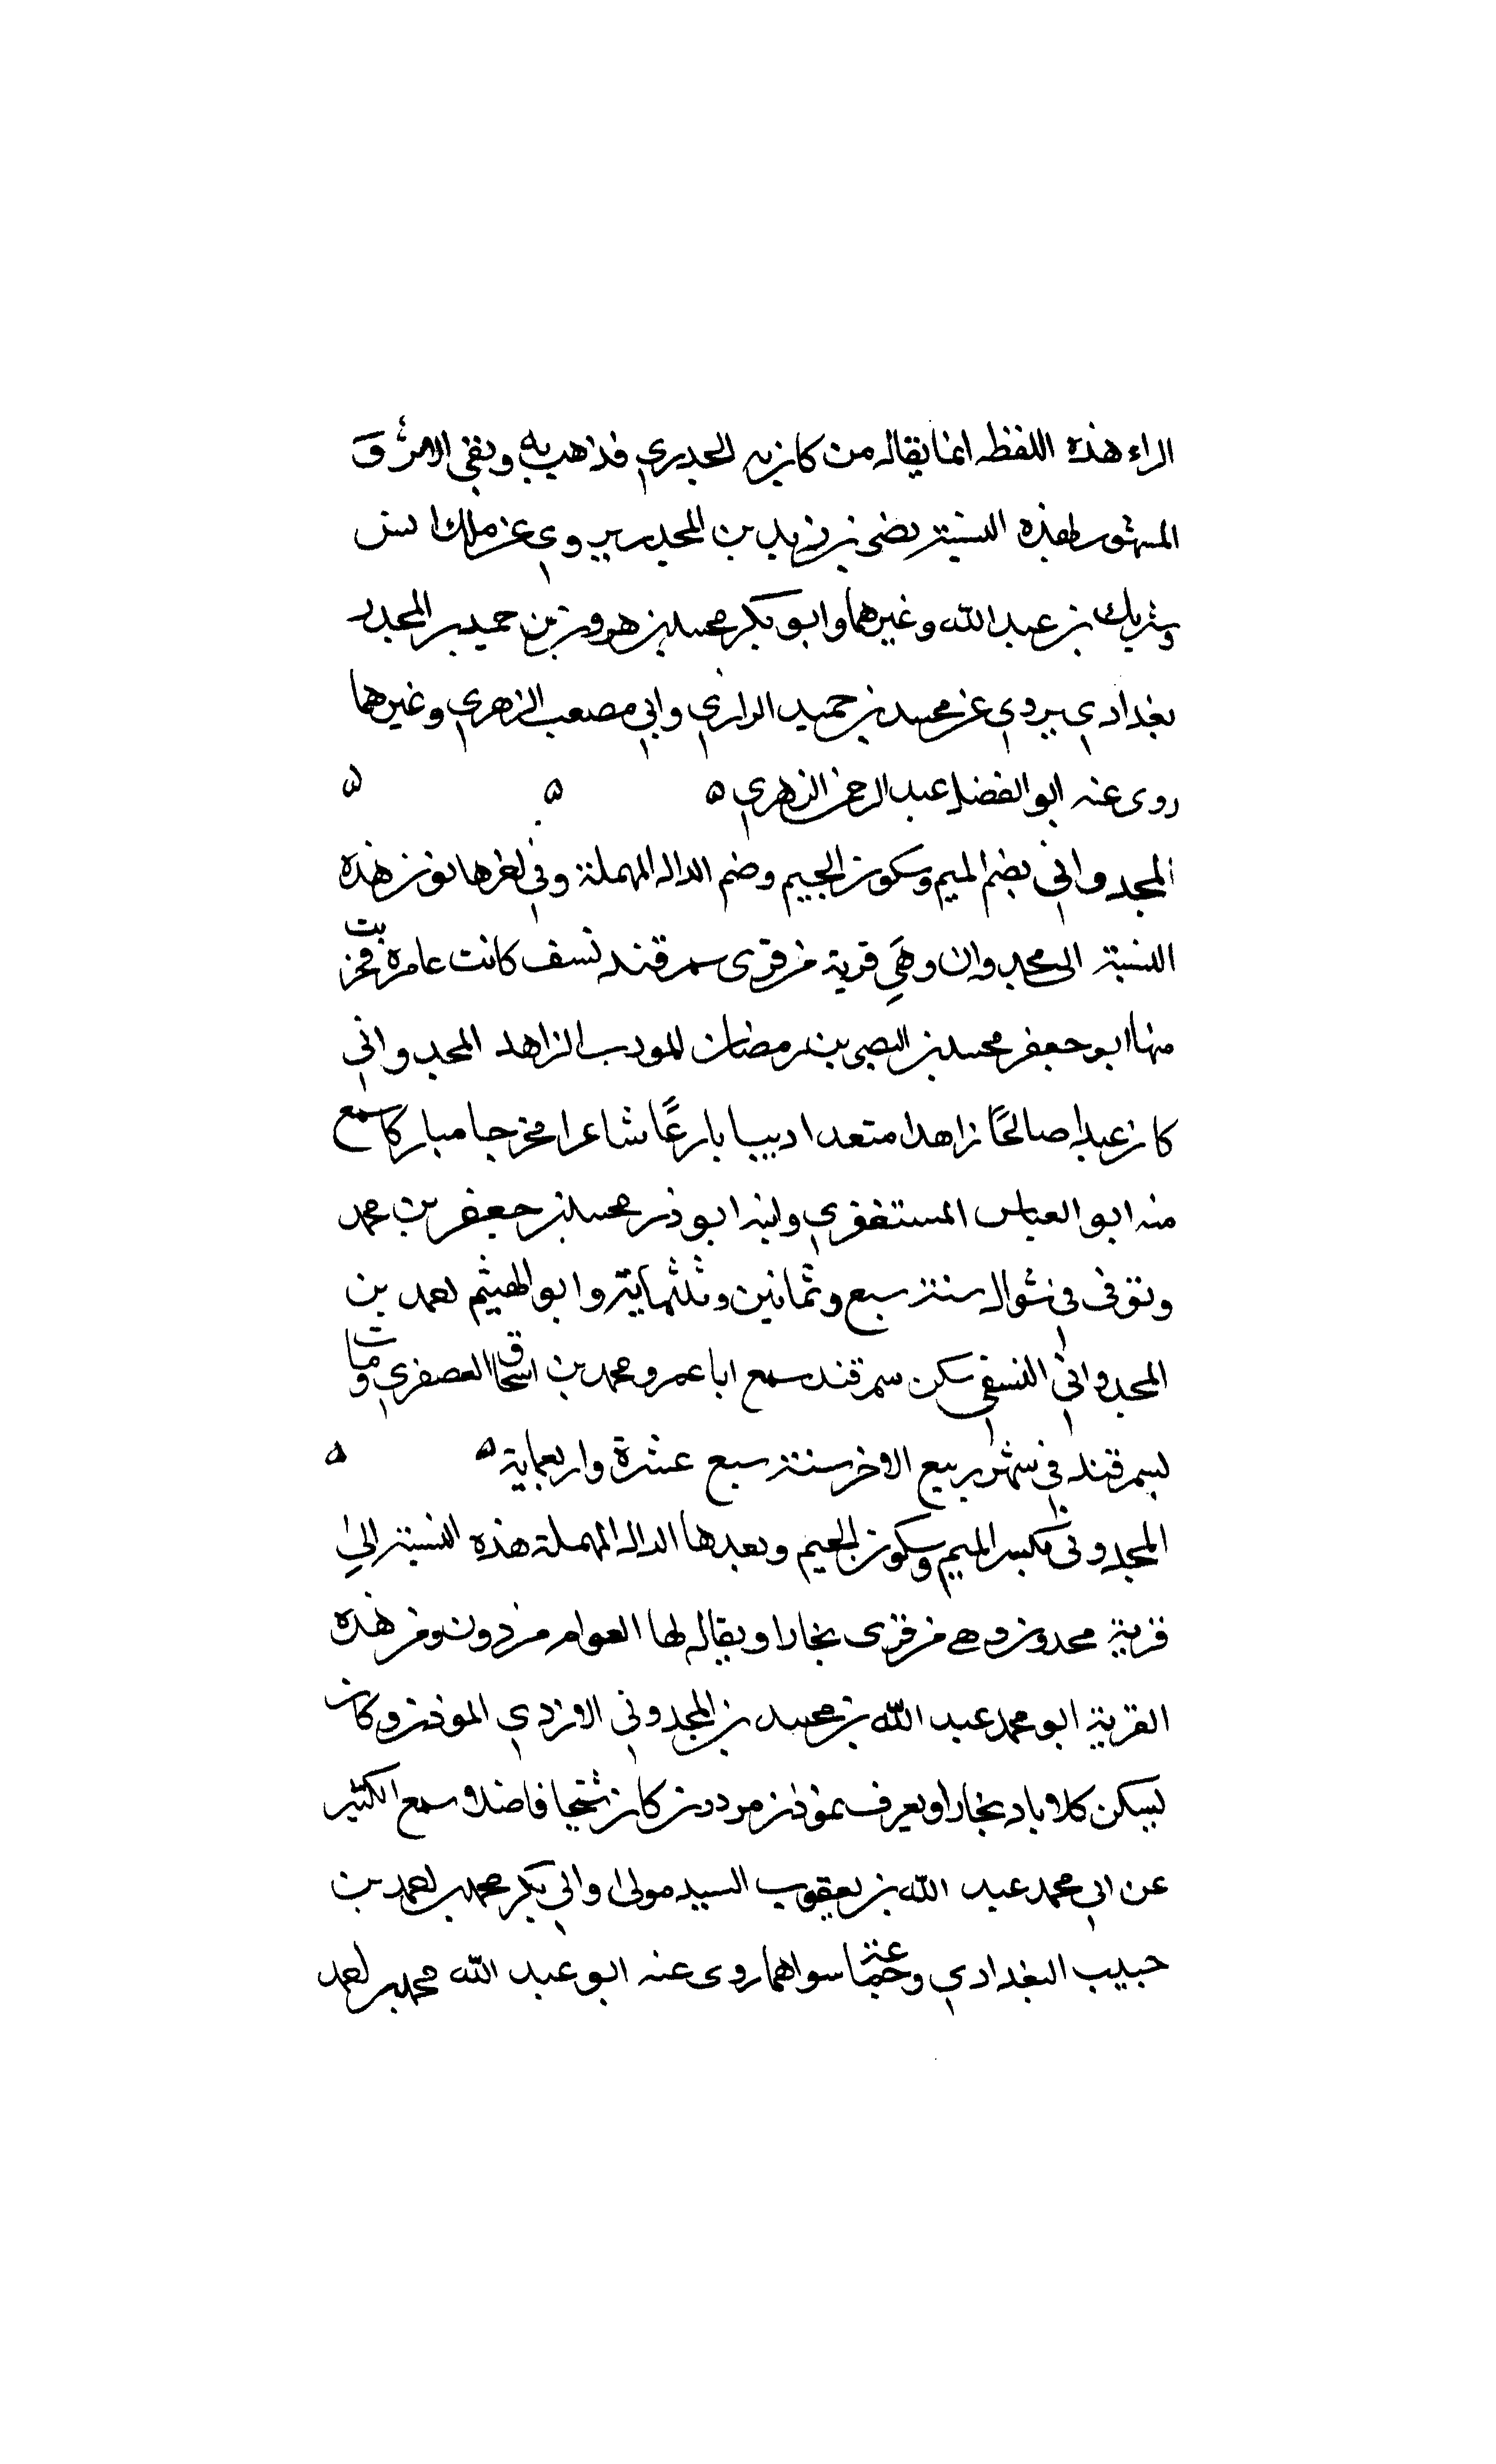 الراء هذه اللفظه انما يقال من كان به الجدري فذهب به وبقي الاثر و
المشهور بهذه النسبة نصر بن زيد بن المجدر يروي عن ملك انس
وشريك بن عبد الله وغيرهما وابو بكر محمد بن هرون بن حميد بن المجدر
بغدادي يروي عن محمد بن حميد الرازي وابي مصعب الزهري وغيرهما
روى عنه ابو الفضل عبد الرحمن الزهري ه ه ه
المجدواني بضم الميم وسكون الجيم وضم الدال المهملة وفي اخرها نون هذه
النسبة الى مجدوان وهي قرية من قرى سمرقند نسف كانت عامرة فخربت
منها ابو جعفر محمد بن النضر بن رمضان المودب الزاهد المجدواني
كان عبدا صالحا زاهدا متعدا اديبا بارعًا شاعرا مخرجا مباركا سمع
منه ابو العباس المستغفري وابنه ابو ذر محمد بن جعفر بن محمد
وتوفى في شوال سنة سبع وثمانين وثلثماية وابو الهيثم احمد بن
المجدواني النسفي سكن سمرقند سمع ابا عمرو محمد بن اسحاق العصفري ومات
بسمرقند في شهر ربيع الاخر سنة سبع عشرة واربعماية ه ه
المجدوني بكسر الميم وسكون الجيم وبعدها الدال المهملة هذه النسبة الى
قرية مجدون وهي من قرى بخارا ويقال لها العوام مزدون ومن هذه
القرية ابو محمد عبد الله بن محمد بن المجدوني الازدي الموذن وكان
يسكن كلاباد بخارا ويعرف بموذن مزدون كان شيخا فاضلا سمع الكثير
عن ابي محمد عبد الله بن يعقوب السيد مولى وابي بكر محمد بن احمد بن
حبيب البغدادي وجماعة سواهما روى عنه ابو عبد الله محمد بن احمد